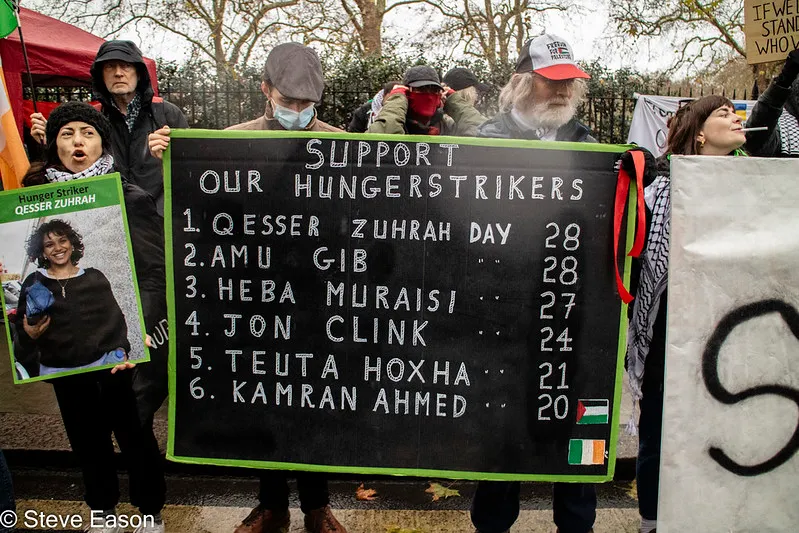 SUPPORT
OUR HUNGERSTRIKERS
1. QESSER ZUHRAH DAY 28
2. AMU GIB " 28
3. HEBA MURAISI " 27
4. JON CLINK " 24
5. TEUTA HOXHA " 21
6. KAMRAN AHMED " 20
Hunger Striker
QESSER ZUHRAH
IF WE
STAND
WHO W
S
© Steve Eason